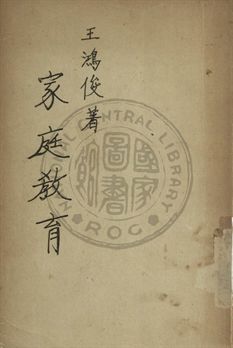 王鴻俊著
家庭教育
NATIONAL CENTRAL LIBRARY
ROC
國家圖書館